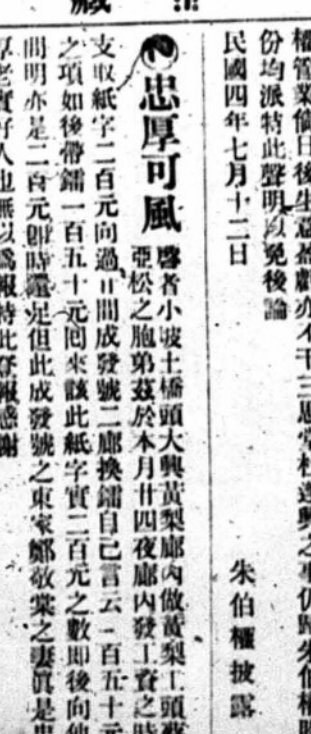 藏
權管業倘日後生意盈虧亦不干三恩堂杜達興之事仍歸朱伯權
份均派特此聲明以免後論
民國四年七月十二日
朱伯權披露
忠厚可風
啓者小坡土橋頭大興黃梨廊內做黃梨工頭蔡
亞松之胞弟茲於本月廿四夜廊內發工資之時
支取紙字二百元向過日間成發號二廊換鐳自己言云一百五十元
之項如後帶鐳一百五十元囘來該此紙字實二百元之數即後向他
問明亦是二百元卽時還足但此成發號之東家鄭敬棠之妻眞是忠
厚老實好人也無以爲報特此登報感謝